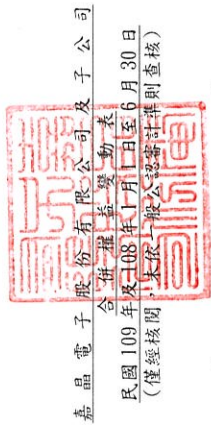 嘉晶電子股份有限公司及子公司
合併權益變動表
民國109年及108年1月1日至6月30日
(僅經核閱，未依一般公認審計準則查核)